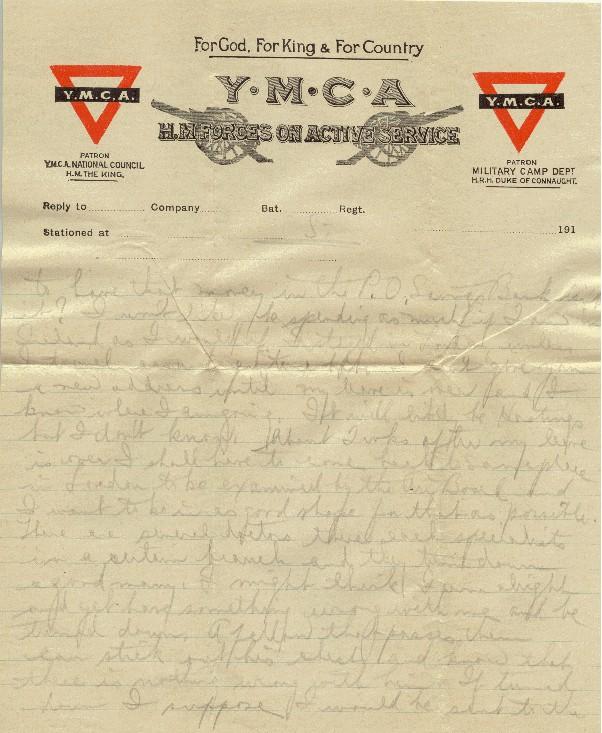 For God, For King & For Country
Y·M·C·A
H.M. FORCES ON ACTIVE SERVICE
Y.M.C.A.
PATRON
Y.M.C.A. NATIONAL COUNCIL
H.M. THE KING.
Y.M.C.A.
PATRON
MILITARY CAMP DEPT
H.R.H. DUKE OF CONNAUGHT.
Reply to Company Bat. Regt.
Stationed at 191
5
to have that money in the P.O. Savings Bank
it? I won't be spending as much if I
Ireland as I would
I travel I can't give you
a new address until my leave is over and I
know where I am going. It will be Hastings
but I don't know. About 2 wks after my leave
is over I shall have to come back to someplace
in London to be examined by the Board and
I want to be in as good shape for that as possible.
There are several doctors there each specialists
in a certain branch and they turn down
a good many. I might think I was alright
and yet have something wrong with me and be
turned down. A fellow that passes them
can stick out his chest and know that
there is nothing wrong with him. If turned
down I suppose I would be sent to the